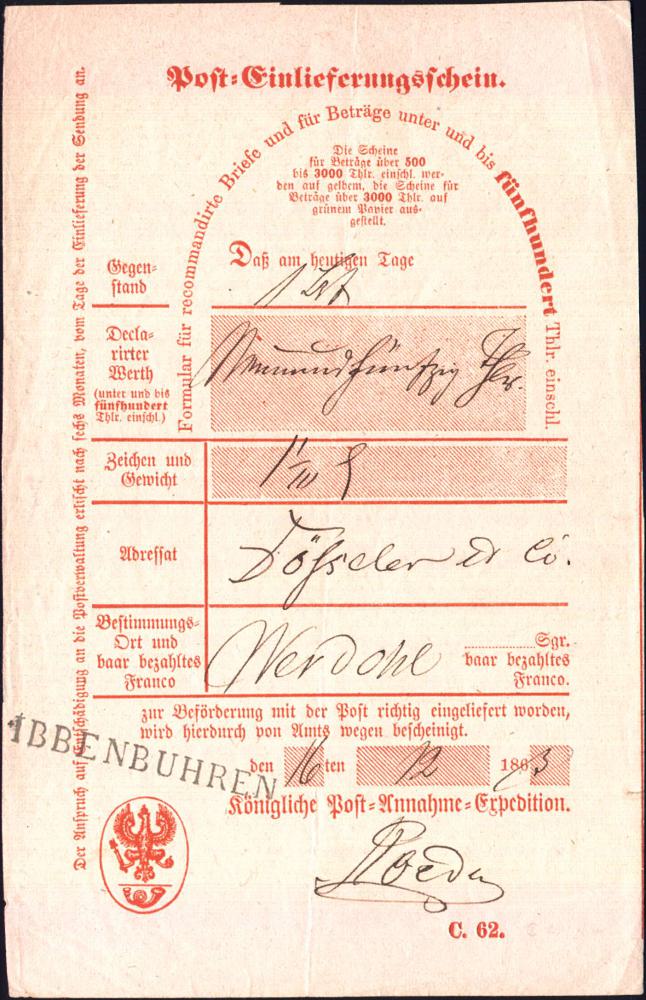 Post-Einlieferungsschein.
Formular für recommandirte Briefe und für Beträge unter und bis fünfhundert Thlr. einschl.
Die Scheine
für Beträge über 500
bis 3000 Thlr. einschl. wer-
den auf gelbem, die Scheine für
Beträge über 3000 Thlr. auf
grünem Papier aus-
gestellt.
Daß am heutigen Tage
Gegen-
stand
1
Decla-
rirter
Werth
(unter und bis
fünfhundert
Thlr. einschl.)
Neunundfünfzig Thlr.
Zeichen und
Gewicht
Adressat
Dösseler et Co.
Bestimmungs-
Ort und
baar bezahltes
Franco
Werdohl
Sgr.
baar bezahltes
Franco.
zur Beförderung mit der Post richtig eingeliefert worden,
wird hierdurch von Amts wegen bescheinigt.
den 16 ten 12 1863
Königliche Post-Annahme-Expedition.
C. 62.
IBBENBUHREN
Der Anspruch auf Entschädigung an die Postverwaltung erlischt nach sechs Monaten, vom Tage der Einlieferung der Sendung an.